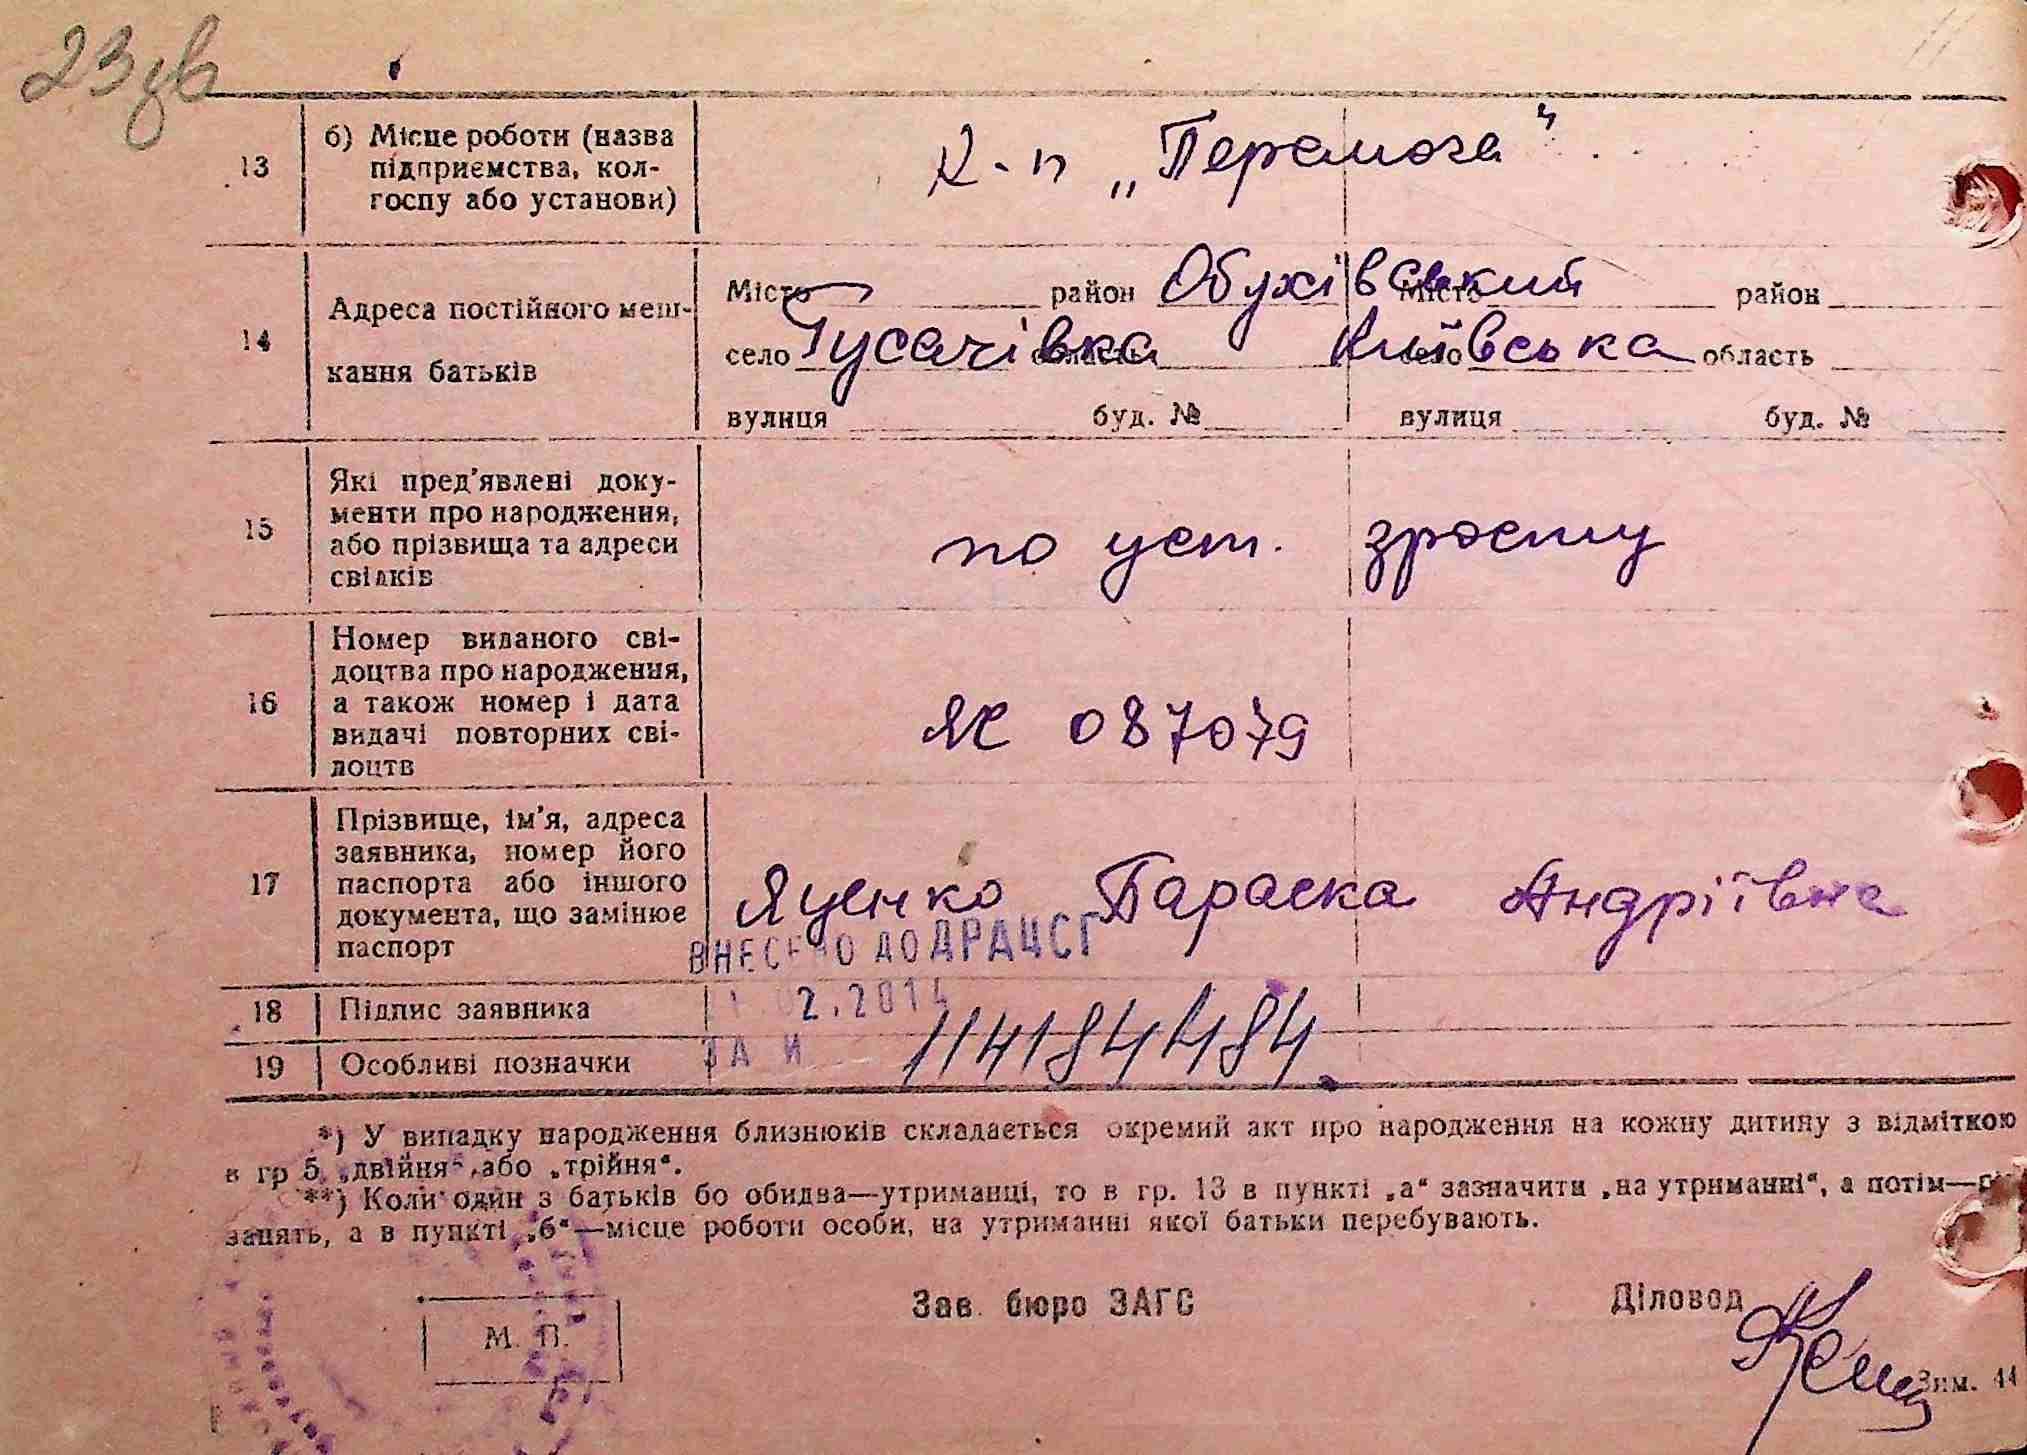 23 зв
13
б) Місце роботи (назва
підприємства, кол-
госпу або установи)
К-п „Перемога"
14
Адреса постійного меш-
кання батьків
Місто район Обухівський Місто район
село Гусачівка область Київська село область
вулиця буд. № вулиця буд. №
15
Які пред'явлені доку-
менти про народження,
або прізвища та адреси
свідків
по уст. зросту
16
Номер виданого сві-
доцтва про народження,
а також номер і дата
видачі повторних сві-
доцтв
ЯЄ 087079
17
Прізвище, ім'я, адреса
заявника, номер його
паспорта або іншого
документа, що замінює
паспорт
Яценко Параска Андріївна
ВНЕСЕНО ДО ДРАЦСГ
18
Підпис заявника
02.2014
19
Особливі позначки
ЗА И 114184484.
*) У випадку народження близнюків складається окремий акт про народження на кожну дитину з відміткою
в гр 5 „двійня" або „трійня".
**) Коли один з батьків бо обидва—утриманці, то в гр. 13 в пункті „а" зазначити „на утриманні", а потім—рід
занять, а в пункті „б"—місце роботи особи, на утриманні якої батьки перебувають.
М. П.
Зав. бюро ЗАГС
Діловод
Зим. 44